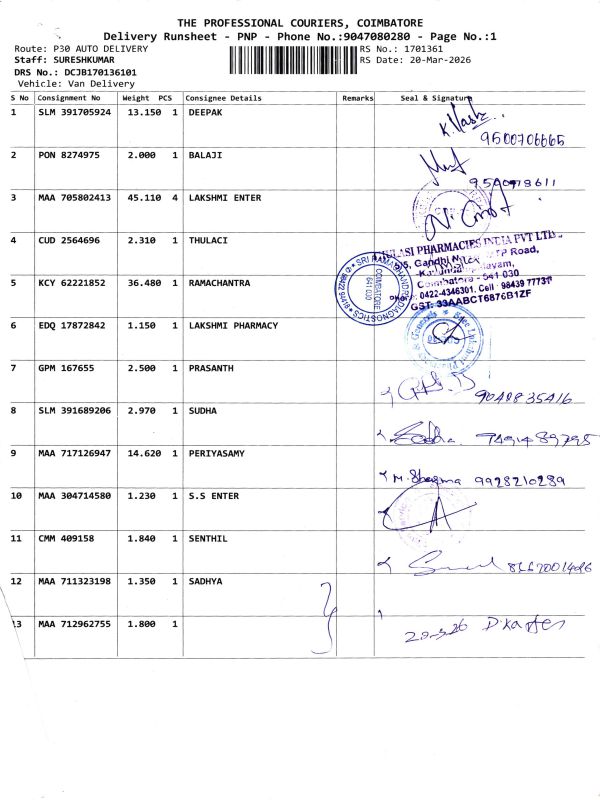 THE PROFESSIONAL COURIERS, COIMBATORE
Delivery Runsheet - PNP - Phone No.:9047080280 - Page No.:1
Route: P30 AUTO DELIVERY
RS No.: 1701361
Staff: SURESHKUMAR
RS Date: 20-Mar-2026
DRS No.: DCJB170136101
Vehicle: Van Delivery
S No Consignment No Weight PCS Consignee Details Remarks Seal & Signature
1 SLM 391705924 13.150 1 DEEPAK
9500706665
2 PON 8274975 2.000 1 BALAJI
3 MAA 705802413 45.110 4 LAKSHMI ENTER
4 CUD 2564696 2.310 1 THULACI
PHARMACIES INDIA PVT LTD.
Road,
Coimbatore - 641 030
0422-4346301. Cell : 98439 77731
GST: 33AABCT6876B1ZF
5 KCY 62221852 36.480 1 RAMACHANTRA
COIMBATORE
641 030
6 EDQ 17872842 1.150 1 LAKSHMI PHARMACY
7 GPM 167655 2.500 1 PRASANTH
9048835416
8 SLM 391689206 2.970 1 SUDHA
Sudha.
9 MAA 717126947 14.620 1 PERIYASAMY
9928210289
10 MAA 304714580 1.230 1 S.S ENTER
11 CMM 409158 1.840 1 SENTHIL
12 MAA 711323198 1.350 1 SADHYA
13 MAA 712962755 1.800 1
20-3-26